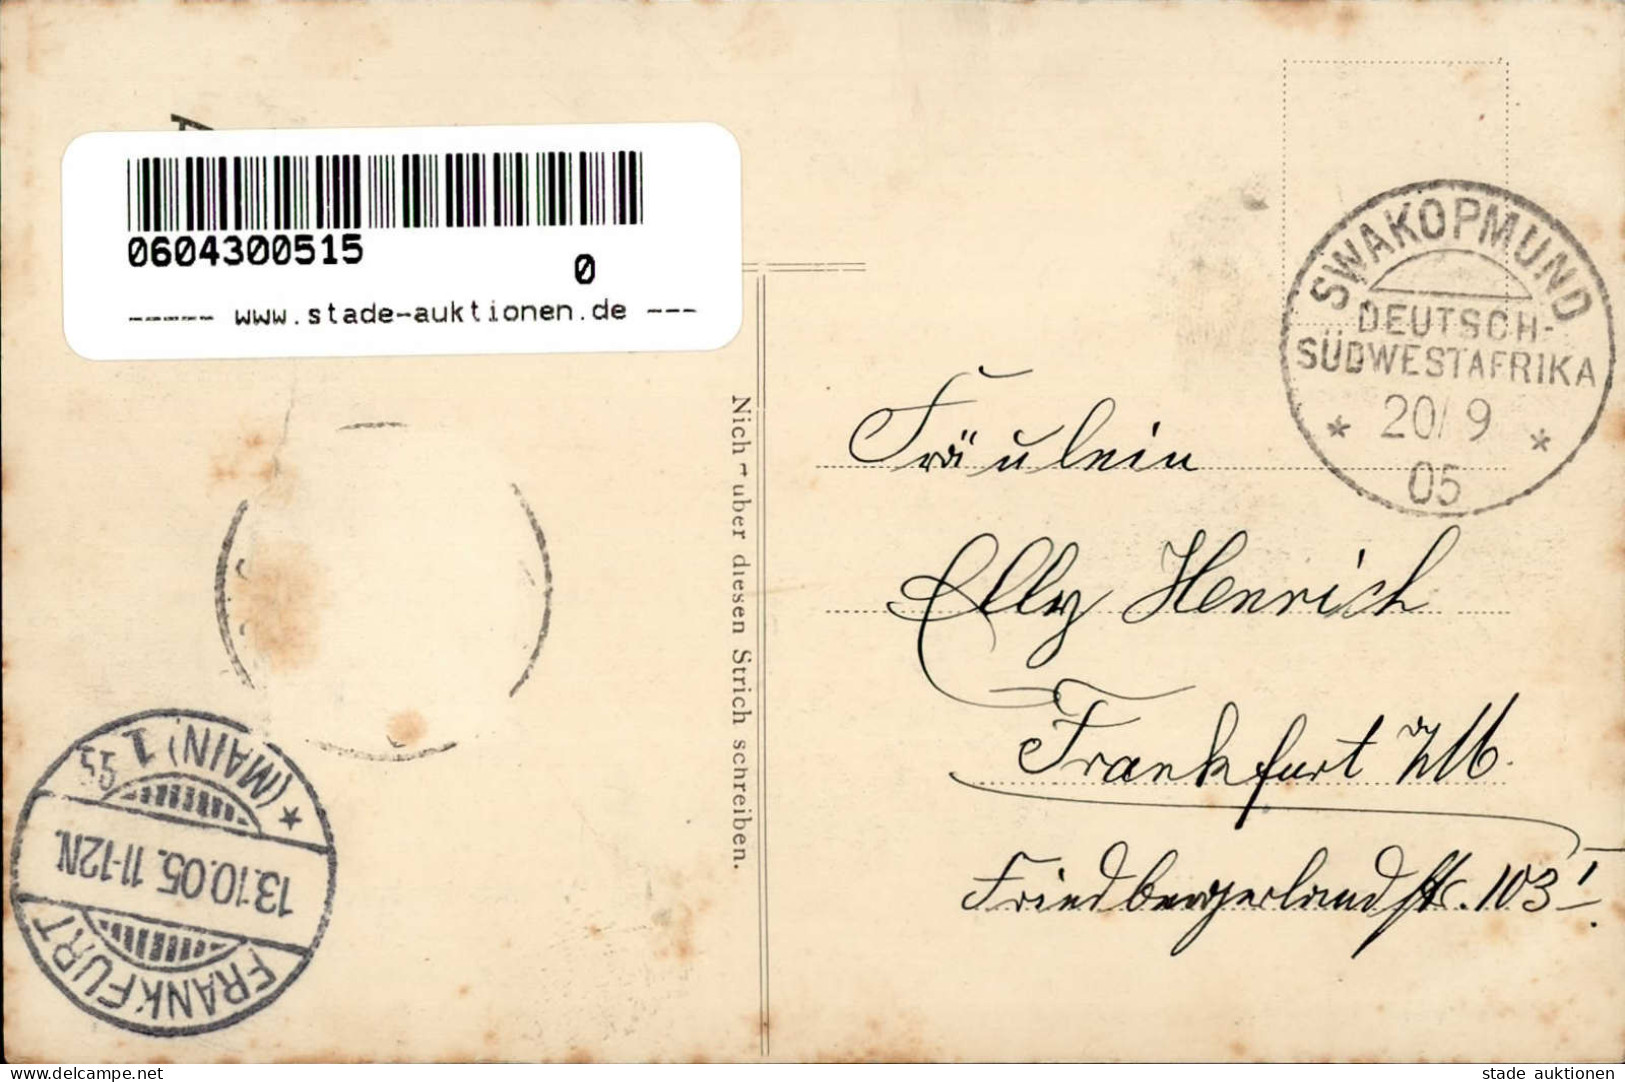 0604300515
0
------ www.stade-auktionen.de ---
SWAKOPMUND
DEUTSCH-
SÜDWESTAFRIKA
* 20/9 *
05
Nich uber diesen Strich schreiben.
Fräulein
Elly Henrich
Frankfurt a/M.
Friedbergerlandstr. 103 I
FRANKFURT
13.10.05. 11-12N.
* (MAIN) 1
delcampe.net
stade auktionen